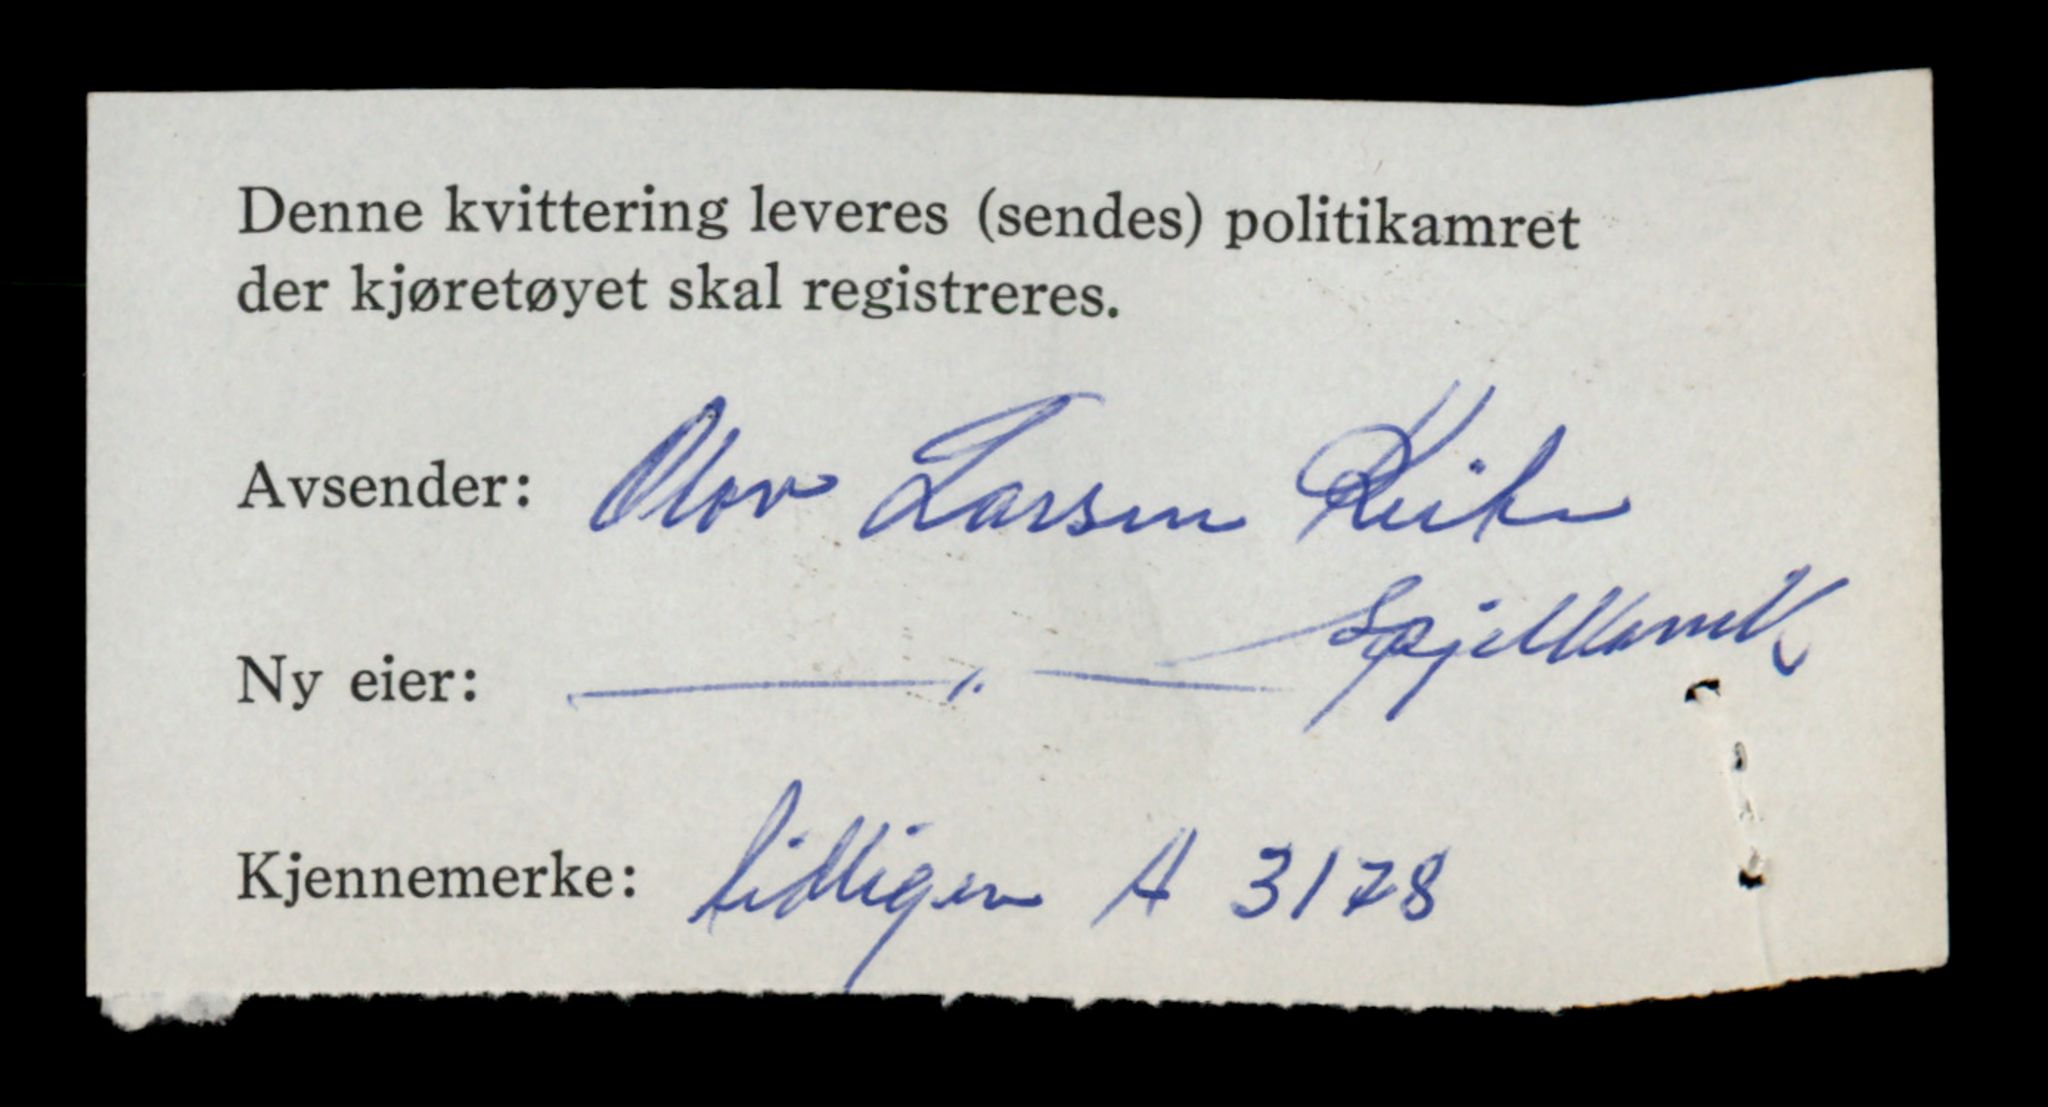 Denne kvittering leveres (sendes) politikamret
der kjøretøyet skal registreres.
Avsender: Olav Larsen
Ny eier: — " — Spjelkavik
Kjennemerke: tidligere A 3178